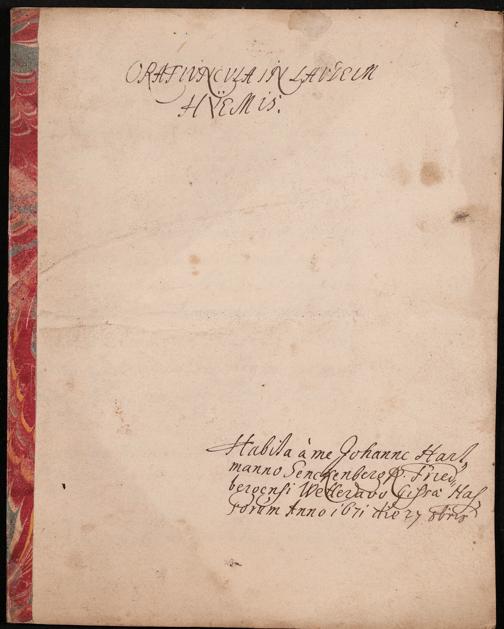 ORATIUNCULA IN LAUDEM
HYEMIS.
Habita à me Johanne Hart
manno Senckenberg Fried
bergensi Wetteravo Gissæ Has
sorum Anno 1671 die 27